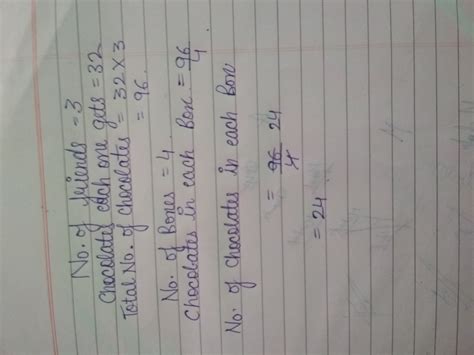 No. of friends = 3
Chocolates each one gets = 32
Total No. of chocolates = 32 x 3
= 96.
No. of Boxes = 4.
Chocolates in each Box = 96/4
No. of Chocolates in each Box
= 96/4 24
= 24